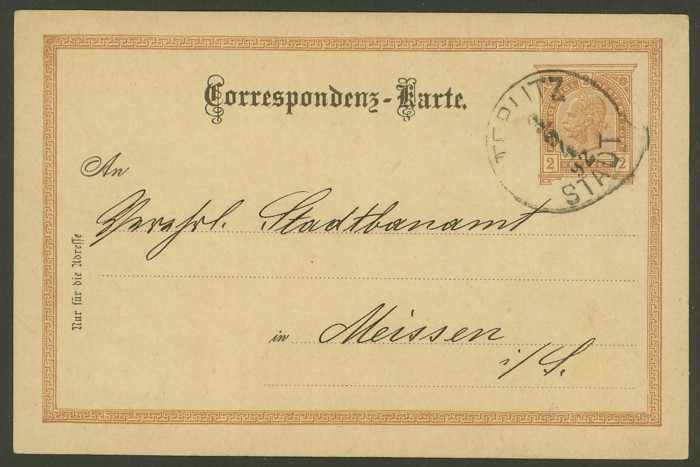 Correspondenz-Karte.
TEPLITZ
STADT
92
2 2
An
Verehrl. Stadtbauamt
Nur für die Adresse
in Meissen
i/S.